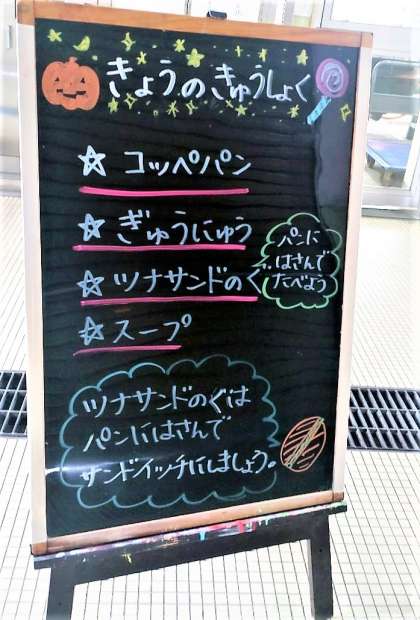 きょうのきゅうしょく
☆ コッペパン
☆ ぎゅうにゅう
☆ ツナサンドのぐ
パンに
はさんで
たべよう
☆ スープ
ツナサンドのぐは
パンにはさんで
サンドイッチにしましょう。